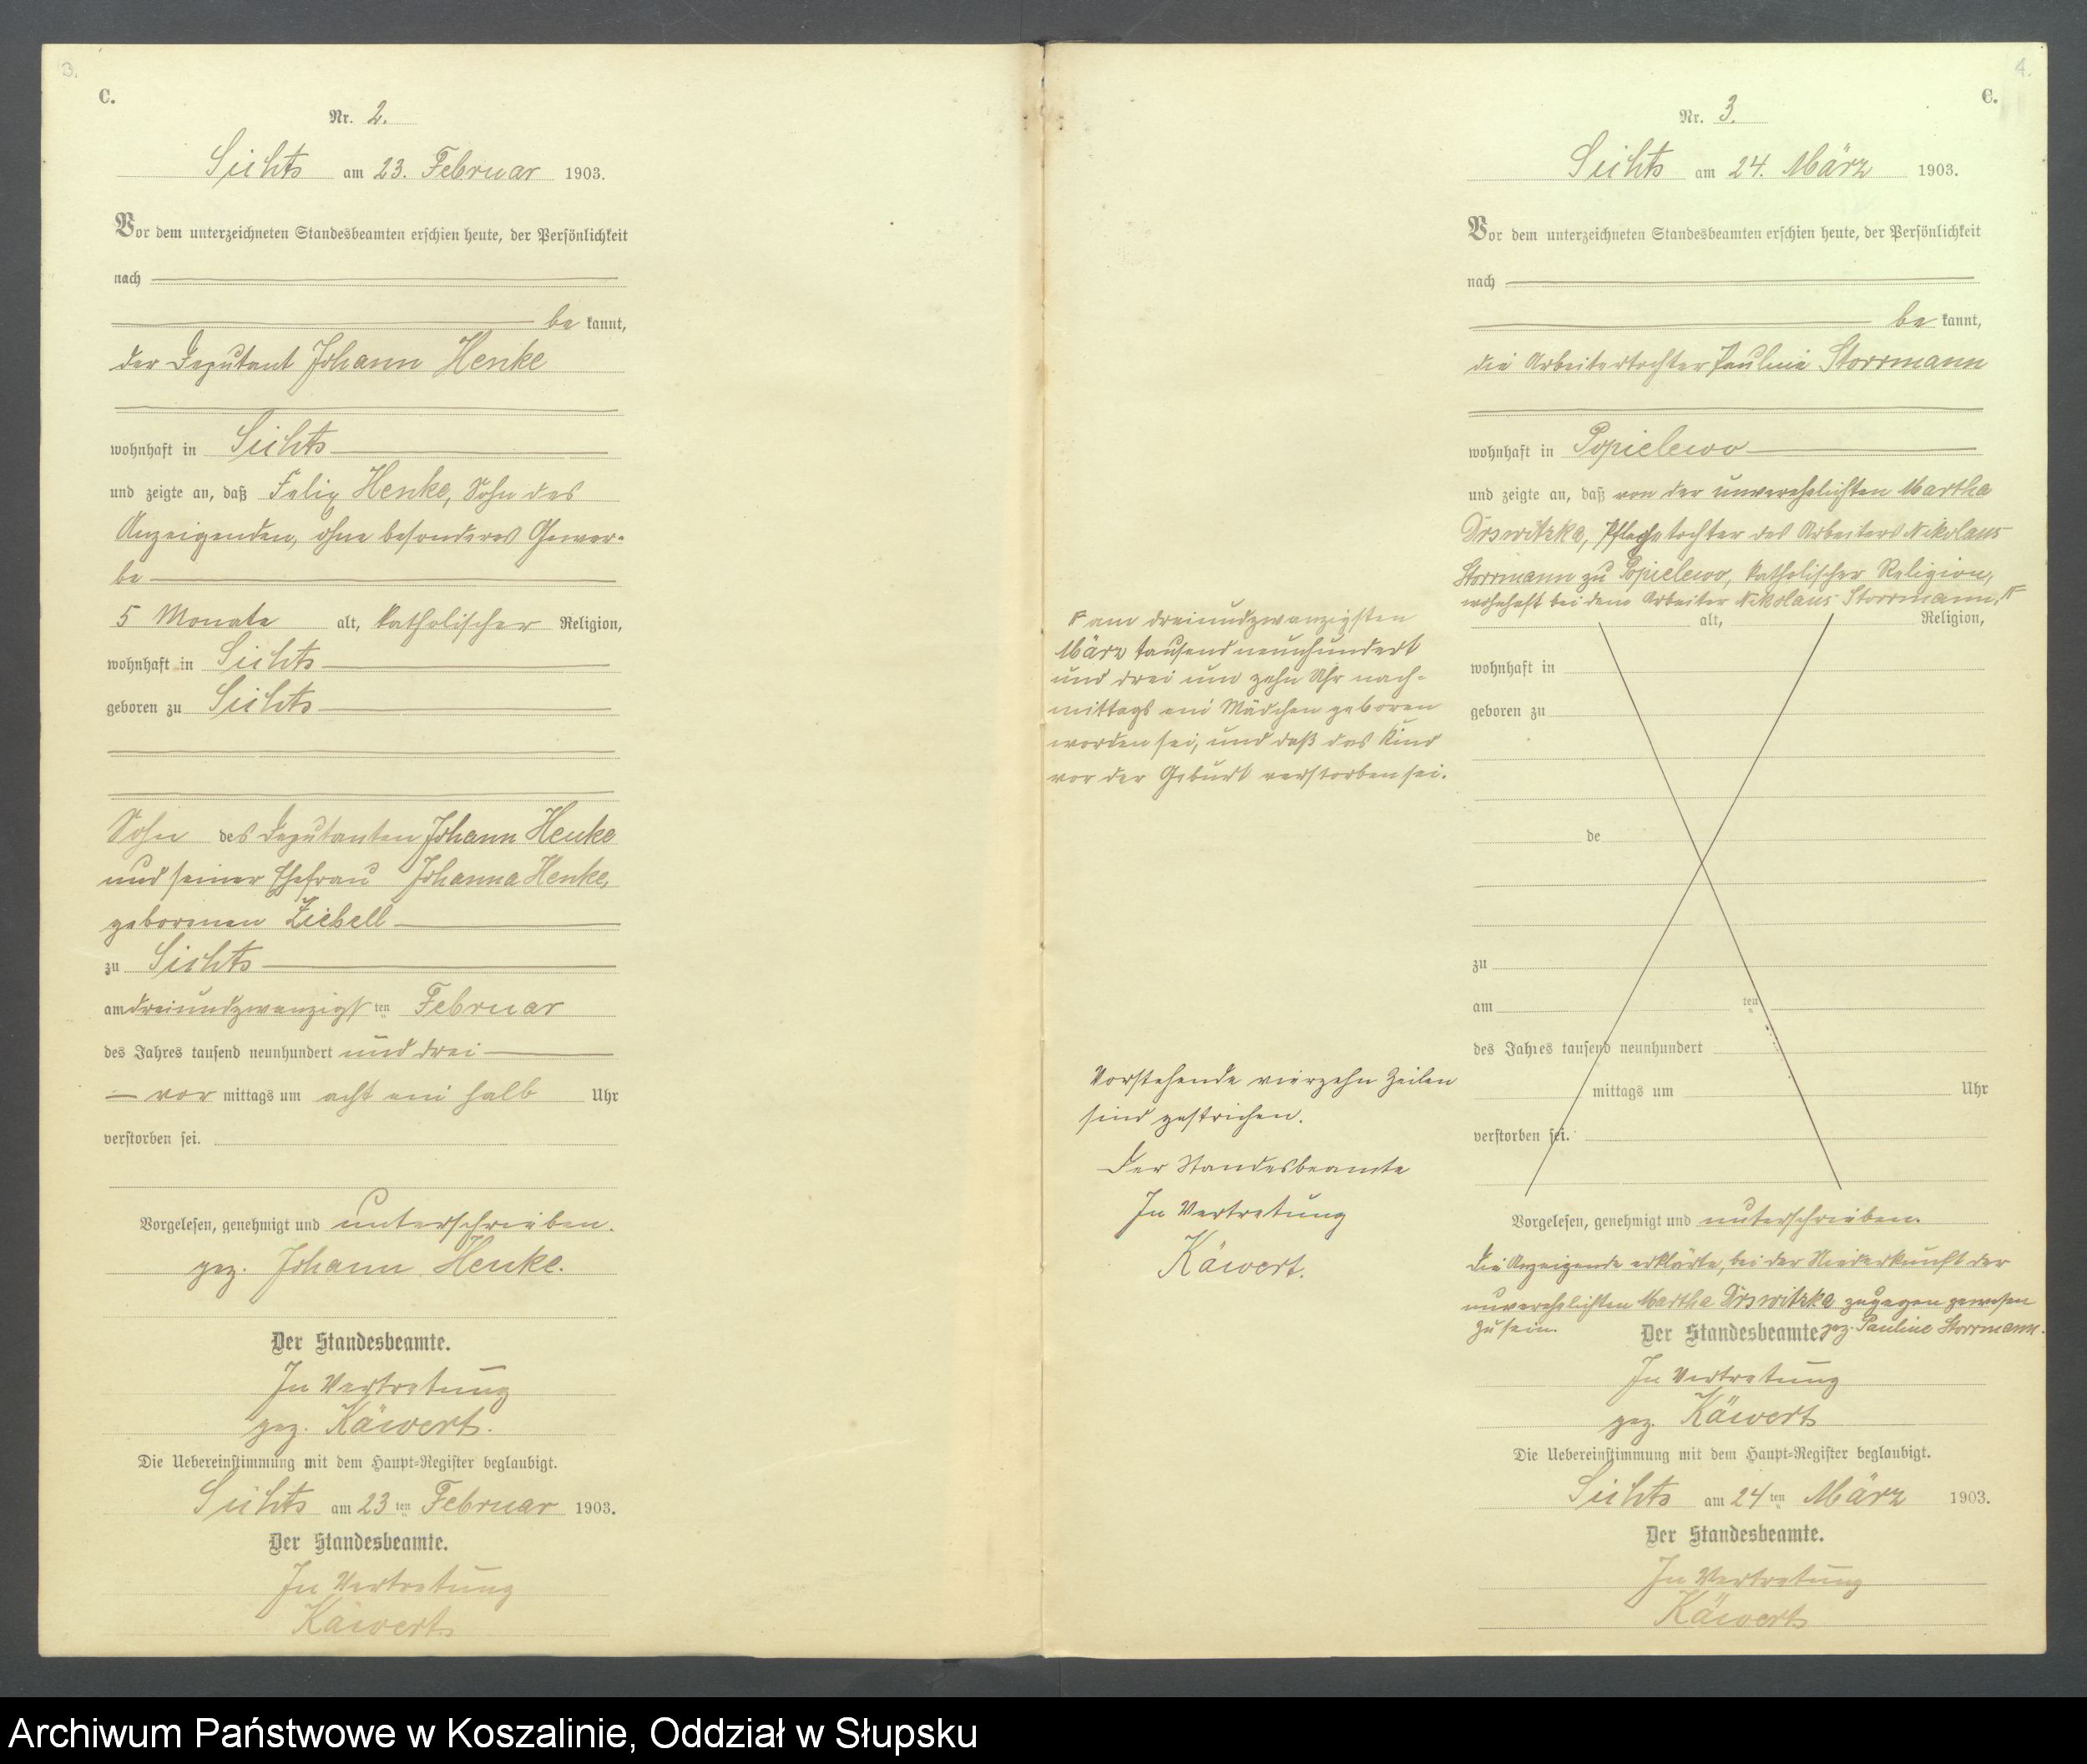 3.
C.
Nr. 2.
Sichts am 23. Februar 1903.
Vor dem unterzeichneten Standesbeamten erschien heute, der Persönlichkeit
nach
be kannt,
der Deputant Johann Henke
wohnhaft in Sichts
und zeigte an, daß Felix Henke, Sohn des
Anzeigenden, ohne besonderes Gewer-
be
5 Monate alt, katholischer Religion,
wohnhaft in Sichts
geboren zu Sichts
Sohn des Deputanten Johann Henke
und seiner Ehefrau Johanna Henke,
geborenen Ziebell
zu Sichts
am dreiundzwanzigsten Februar
des Jahres tausend neunhundert und drei
vor mittags um acht ein halb Uhr
verstorben sei.
Vorgelesen, genehmigt und unterschrieben.
gez. Johann Henke.
Der Standesbeamte.
In Vertretung
gez. Käwert.
Die Uebereinstimmung mit dem Haupt-Register beglaubigt.
Sichts am 23 ten Februar 1903.
Der Standesbeamte.
In Vertretung
Käwert
4.
C.
Nr. 3.
Sichts am 24. März 1903.
Vor dem unterzeichneten Standesbeamten erschien heute, der Persönlichkeit
nach
be kannt,
die Arbeitertochter Pauline Storrmann
wohnhaft in Popielewo
und zeigte an, daß von der unverehelichten Martha
Pflegetochter des Arbeiters Nikolaus
Storrmann zu Popielewo, katholischer Religion,
wohnhaft bei dem Arbeiter Nikolaus Storrmann,
alt, Religion,
wohnhaft in
geboren zu
de
zu
am ten
des Jahres tausend neunhundert
mittags um Uhr
verstorben sei.
am dreiundzwanzigsten
März tausend neunhundert
und drei um zehn Uhr nach-
mittags ein Mädchen geboren
worden sei, und daß das Kind
vor der Geburt verstorben sei.
Vorstehende vierzehn Zeilen
sind gestrichen.
Der Standesbeamte
In Vertretung
Käwert.
Vorgelesen, genehmigt und unterschrieben.
Die Anzeigende erklärte, bei der Niederkunft der
unverehelichten Martha zugegen gewesen
zu sein. gez. Pauline Storrmann.
Der Standesbeamte
In Vertretung
gez. Käwert
Die Uebereinstimmung mit dem Haupt-Register beglaubigt.
Sichts am 24 ten März 1903.
Der Standesbeamte.
In Vertretung
Käwert
Archiwum Państwowe w Koszalinie, Oddział w Słupsku